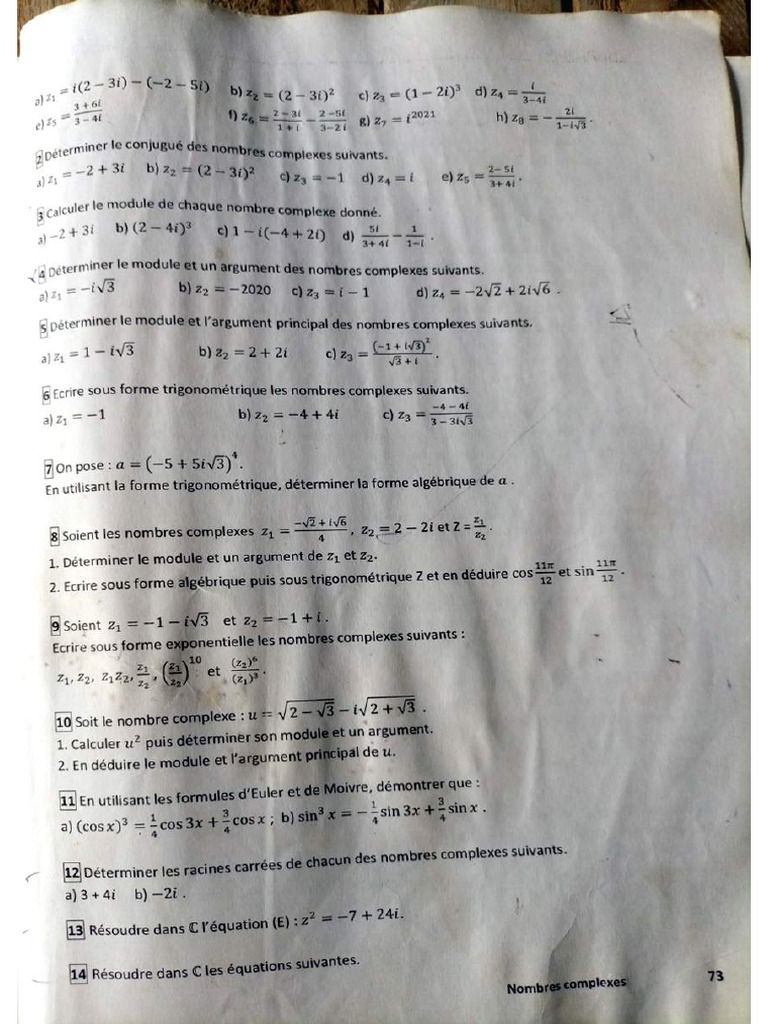 a) z₁ = i(2 − 3i) − (−2 − 5i) b) z₂ = (2 − 3i)² c) z₃ = (1 − 2i)³ d) z₄ = i/(3−4i)
e) z₅ = (3 + 6i)/(3 − 4i) f) z₆ = (2 − 3i)/(1 + i) − (2 −5i)/(3−2i) g) z₇ = i²⁰²¹ h) z₈ = − 2i/(1−i√3) .
2 Déterminer le conjugué des nombres complexes suivants.
a) z₁ = −2 + 3i b) z₂ = (2 − 3i)² c) z₃ = −1 d) z₄ = i e) z₅ = (2− 5i)/(3+ 4i) .
3 Calculer le module de chaque nombre complexe donné.
a) −2 + 3i b) (2 − 4i)³ c) 1 − i(−4 + 2i) d) 5i/(3+ 4i) − 1/(1−i) .
4 Déterminer le module et un argument des nombres complexes suivants.
a) z₁ = −i√3 b) z₂ = −2020 c) z₃ = i − 1 d) z₄ = −2√2 + 2i√6 .
5 Déterminer le module et l'argument principal des nombres complexes suivants.
a) z₁ = 1 − i√3 b) z₂ = 2 + 2i c) z₃ = (−1 + i√3)²/(√3 + i) .
6 Ecrire sous forme trigonométrique les nombres complexes suivants.
a) z₁ = −1 b) z₂ = −4 + 4i c) z₃ = (−4 − 4i)/(3 − 3i√3)
7 On pose : a = (−5 + 5i√3)⁴.
En utilisant la forme trigonométrique, déterminer la forme algébrique de a .
8 Soient les nombres complexes z₁ = (−√2 + i√6)/4 , z₂ = 2 − 2i et Z = z₁/z₂ .
1. Déterminer le module et un argument de z₁ et z₂.
2. Ecrire sous forme algébrique puis sous trigonométrique Z et en déduire cos 11π/12 et sin 11π/12 .
9 Soient z₁ = −1 − i√3 et z₂ = −1 + i .
Ecrire sous forme exponentielle les nombres complexes suivants :
z₁, z₂, z₁z₂, z₁/z₂ , (z₁/z₂)¹⁰ et (z₂)⁶/(z₁)³ .
10 Soit le nombre complexe : u = √(2 − √3) − i√(2 + √3) .
1. Calculer u² puis déterminer son module et un argument.
2. En déduire le module et l'argument principal de u.
11 En utilisant les formules d'Euler et de Moivre, démontrer que :
a) (cos x)³ = 1/4 cos 3x + 3/4 cos x ; b) sin³ x = − 1/4 sin 3x + 3/4 sin x .
12 Déterminer les racines carrées de chacun des nombres complexes suivants.
a) 3 + 4i b) −2i .
13 Résoudre dans ℂ l'équation (E) : z² = −7 + 24i.
14 Résoudre dans ℂ les équations suivantes.
Nombres complexes 73